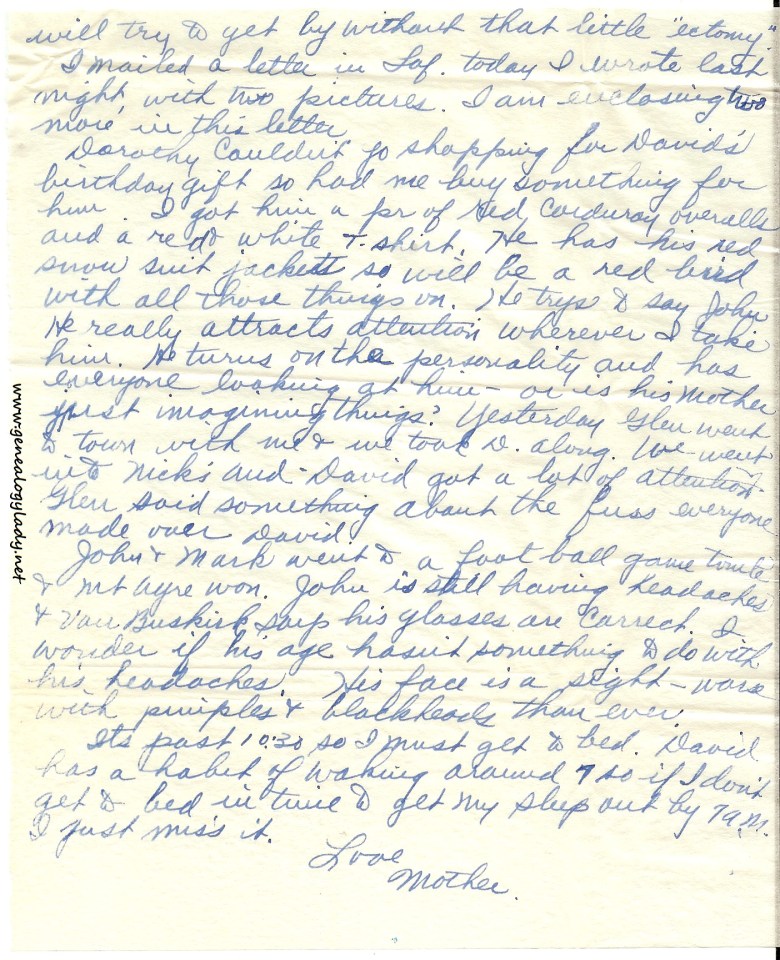 will try to get by without that little "ectomy."
I mailed a letter in Laf. today I wrote last
night, with two pictures. I am enclosing two
more in this letter
Dorothy couldn't go shopping for David's
birthday gift so had me buy something for
him. I got him a pr of Red Corduroy overalls
and a red & white T-shirt. He has his red
snow suit jacket so will be a red bird
with all those things on. He trys to say John
He really attracts attention wherever I take
him. He turns on the personality and has
everyone looking at him - or is his mother
just imagining things? Yesterday Glen went
to town with me & we took D. along. We went
into Nick's and David got a lot of attention.
Glen said something about the fuss everyone
made over David.
John & Mark went to a foot ball game tonite
& Mt Ayre won. John is still having headaches
& Van Buskirk says his glasses are correct. I
wonder if his age hasn't something to do with
his headaches. His face is a sight - worse
with pimples & blackheads than ever.
Its past 10:30 so I must get to bed. David
has a habit of waking around 7 so if I don't
get to bed in time to get my sleep out by 7 a.m.
I just miss it.
Love
Mother.
www.genealogylady.net